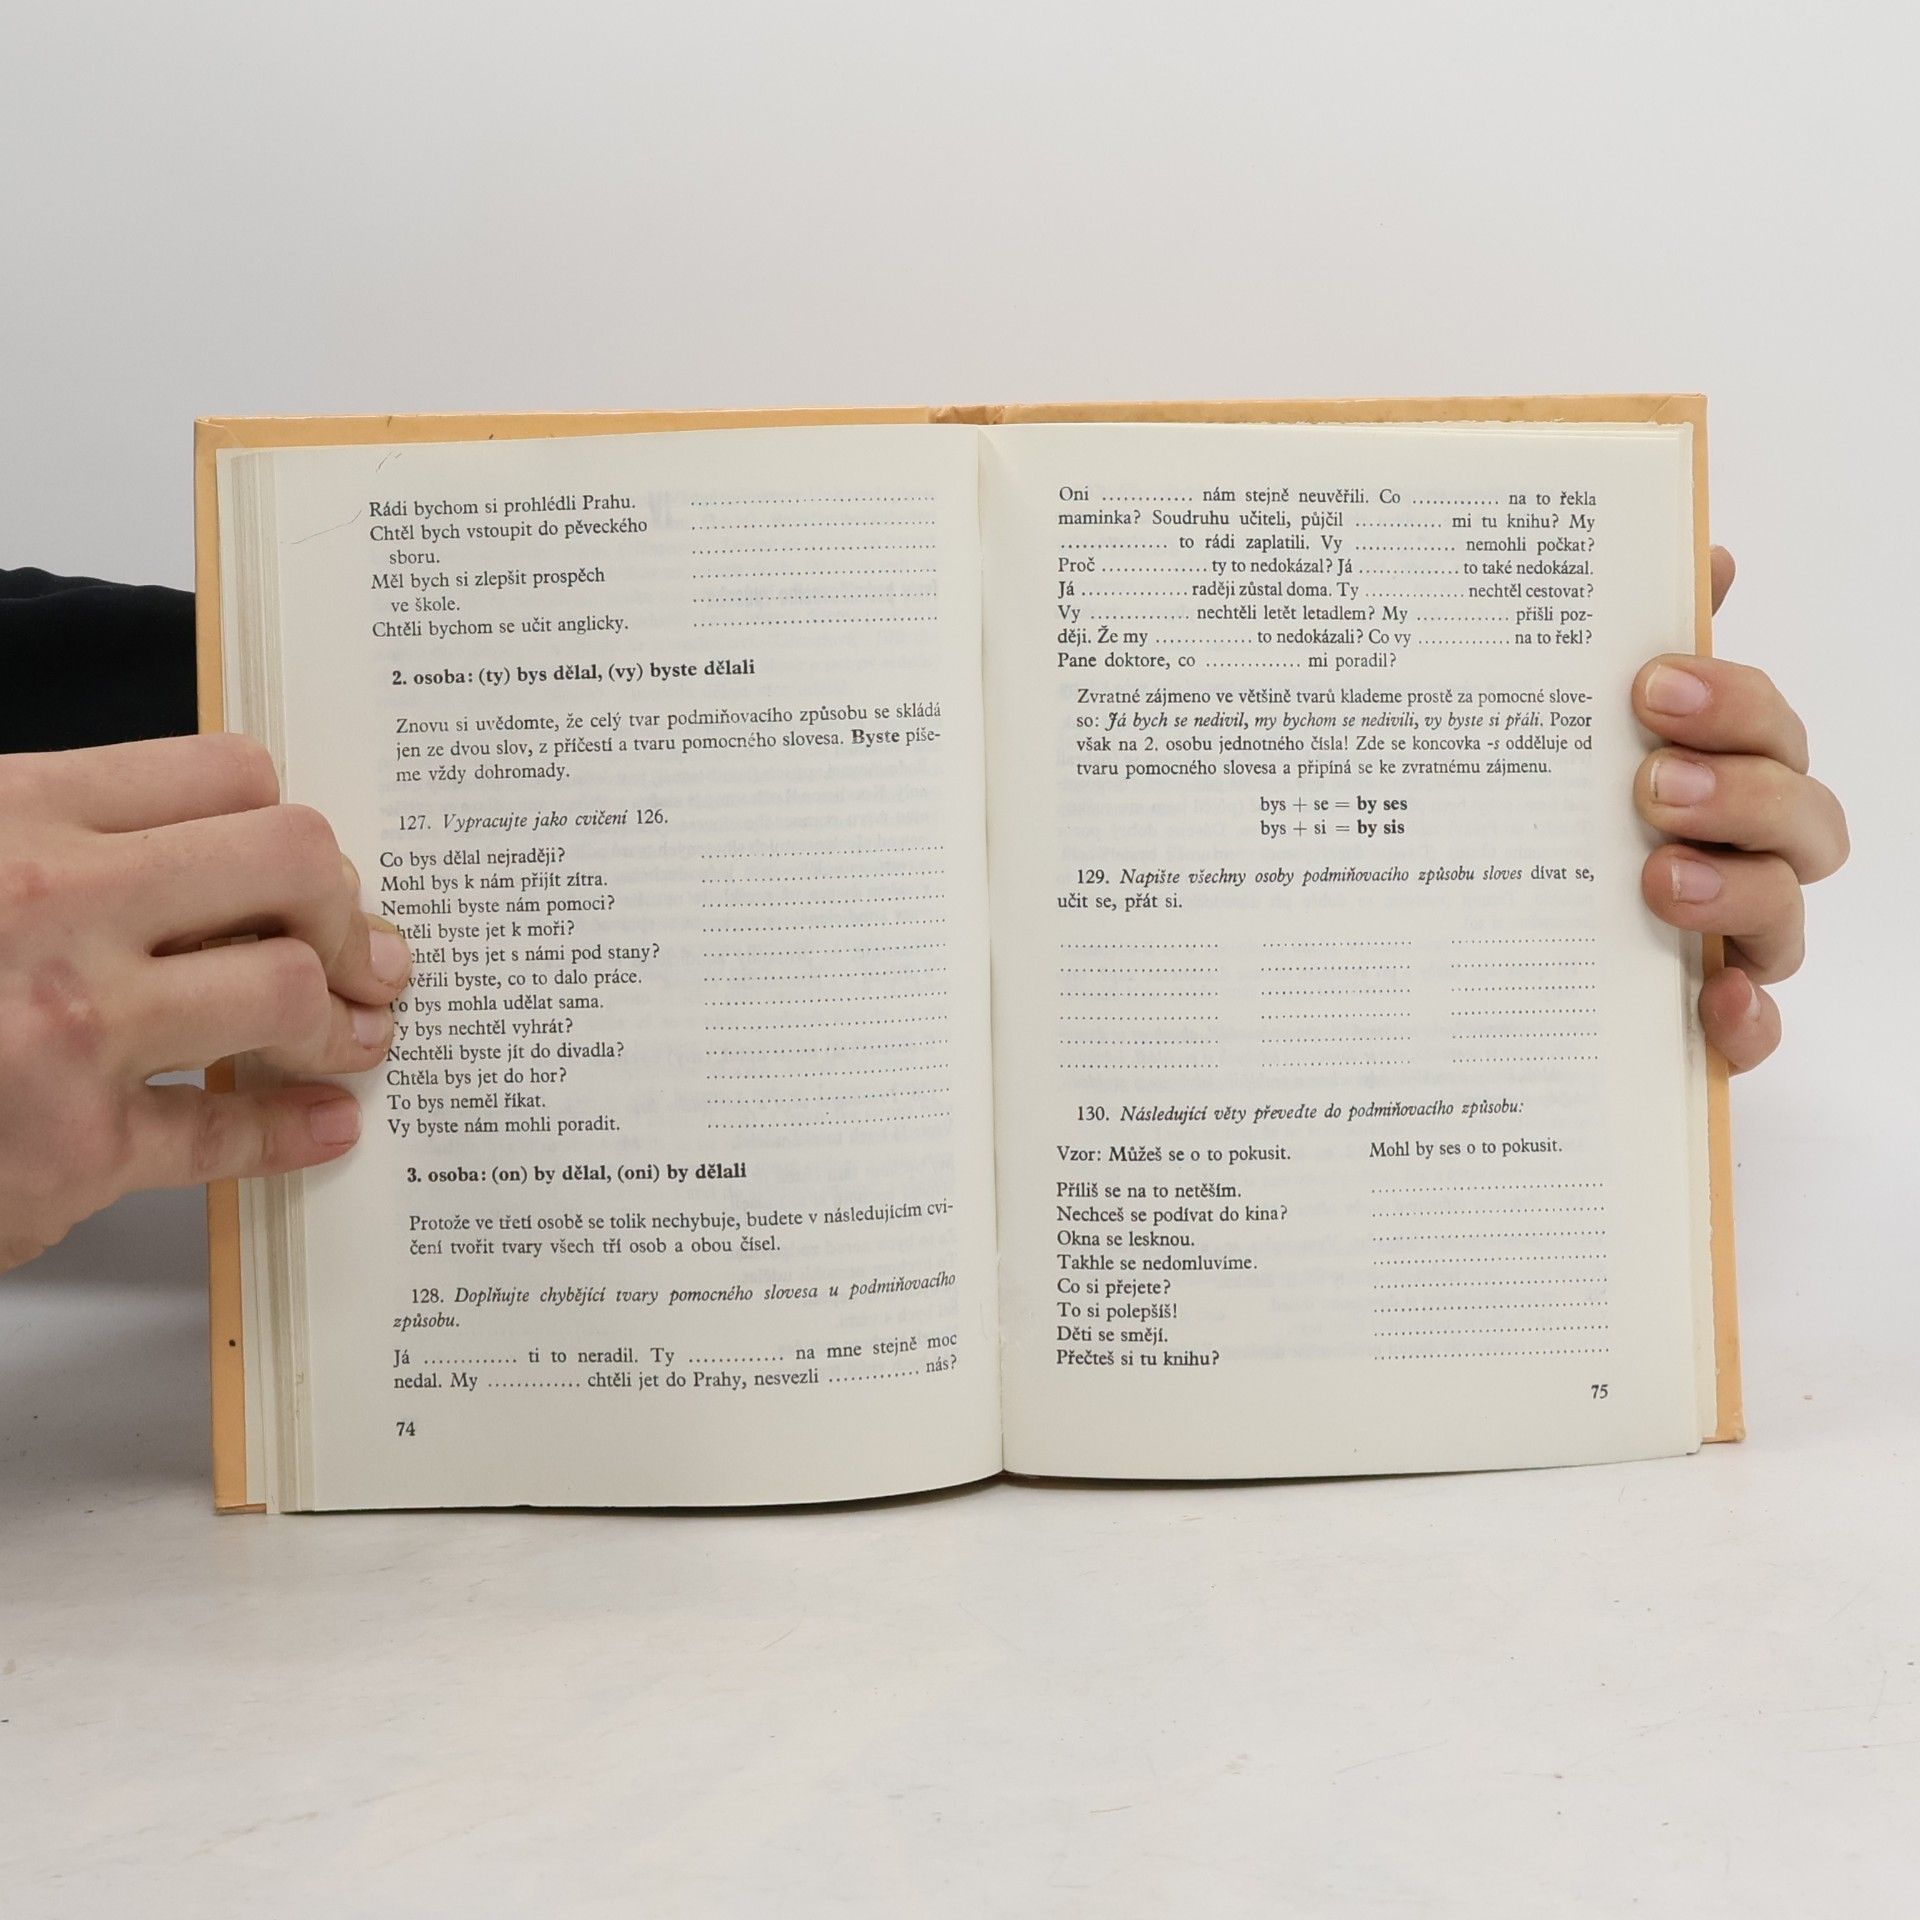 Rádi bychom si prohlédli Prahu. ....................
Chtěl bych vstoupit do pěveckého ....................
sboru. ....................
Měl bych si zlepšit prospěch ....................
ve škole. ....................
Chtěli bychom se učit anglicky. ....................
2. osoba: (ty) bys dělal, (vy) byste dělali
Znovu si uvědomte, že celý tvar podmiňovacího způsobu se skládá
jen ze dvou slov, z příčestí a tvaru pomocného slovesa. Byste píše-
me vždy dohromady.
127. Vypracujte jako cvičení 126.
Co bys dělal nejraději? ....................
Mohl bys k nám přijít zítra. ....................
Nemohli byste nám pomoci? ....................
htěli byste jet k moři? ....................
chtěl bys jet s námi pod stany? ....................
věřili byste, co to dalo práce. ....................
To bys mohla udělat sama. ....................
Ty bys nechtěl vyhrát? ....................
Nechtěli byste jít do divadla? ....................
Chtěla bys jet do hor? ....................
To bys neměl říkat. ....................
Vy byste nám mohli poradit. ....................
3. osoba: (on) by dělal, (oni) by dělali
Protože ve třetí osobě se tolik nechybuje, budete v následujícím cvi-
čení tvořit tvary všech tří osob a obou čísel.
128. Doplňujte chybějící tvary pomocného slovesa u podmiňovacího
způsobu.
Já ............. ti to neradil. Ty ............. na mne stejně moc
nedal. My ............. chtěli jet do Prahy, nesvezli ............. nás?
74
Oni ............. nám stejně neuvěřili. Co ............. na to řekla
maminka? Soudruhu učiteli, půjčil ............. mi tu knihu? My
............... to rádi zaplatili. Vy .............. nemohli počkat?
Proč ............... ty to nedokázal? Já .............. to také nedokázal.
Já ............... raději zůstal doma. Ty .............. nechtěl cestovat?
Vy .............. nechtěli letět letadlem? My ............. přišli poz-
ději. Že my ............. to nedokázali? Co vy ............. na to řekl?
Pane doktore, co ............. mi poradil?
Zvratné zájmeno ve většině tvarů klademe prostě za pomocné slove-
so: Já bych se nedivil, my bychom se nedivili, vy byste si přáli. Pozor
však na 2. osobu jednotného čísla! Zde se koncovka -s odděluje od
tvaru pomocného slovesa a připíná se ke zvratnému zájmenu.
bys + se = by ses
bys + si = by sis
129. Napište všechny osoby podmiňovacího způsobu sloves dívat se,
učit se, přát si.
.................... .................... ....................
.................... .................... ....................
.................... .................... ....................
.................... .................... ....................
.................... .................... ....................
.................... .................... ....................
130. Následující věty převeďte do podmiňovacího způsobu:
Vzor: Můžeš se o to pokusit. Mohl by ses o to pokusit.
Příliš se na to netěším. ....................
Nechceš se podívat do kina? ....................
Okna se lesknou. ....................
Takhle se nedomluvíme. ....................
Co si přejete? ....................
To si polepšíš! ....................
Děti se smějí. ....................
Přečteš si tu knihu? ....................
75